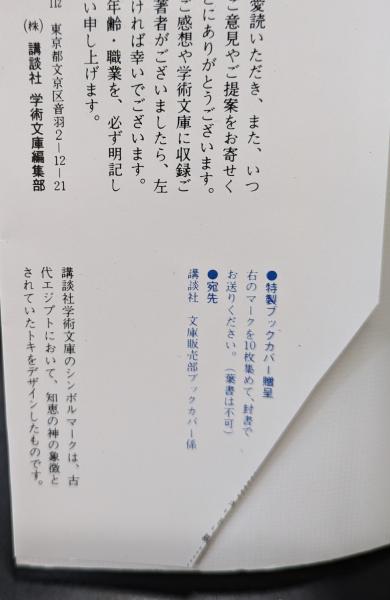 愛読いただき、また、いつ
ご意見やご提案をお寄せく
とにありがとうございます。
ご感想や学術文庫に収録ご
著者がございましたら、左
ければ幸いでございます。
年齢・職業を、必ず明記し
い申し上げます。
112 東京都文京区音羽2―12―21
(株) 講談社 学術文庫編集部
●特製ブックカバー贈呈
右のマークを10枚集めて、封書で
お送りください。(葉書は不可)
●宛先
講談社 文庫販売部ブックカバー係
講談社学術文庫のシンボルマークは、古
代エジプトにおいて、知恵の神の象徴と
されていたトキをデザインしたものです。